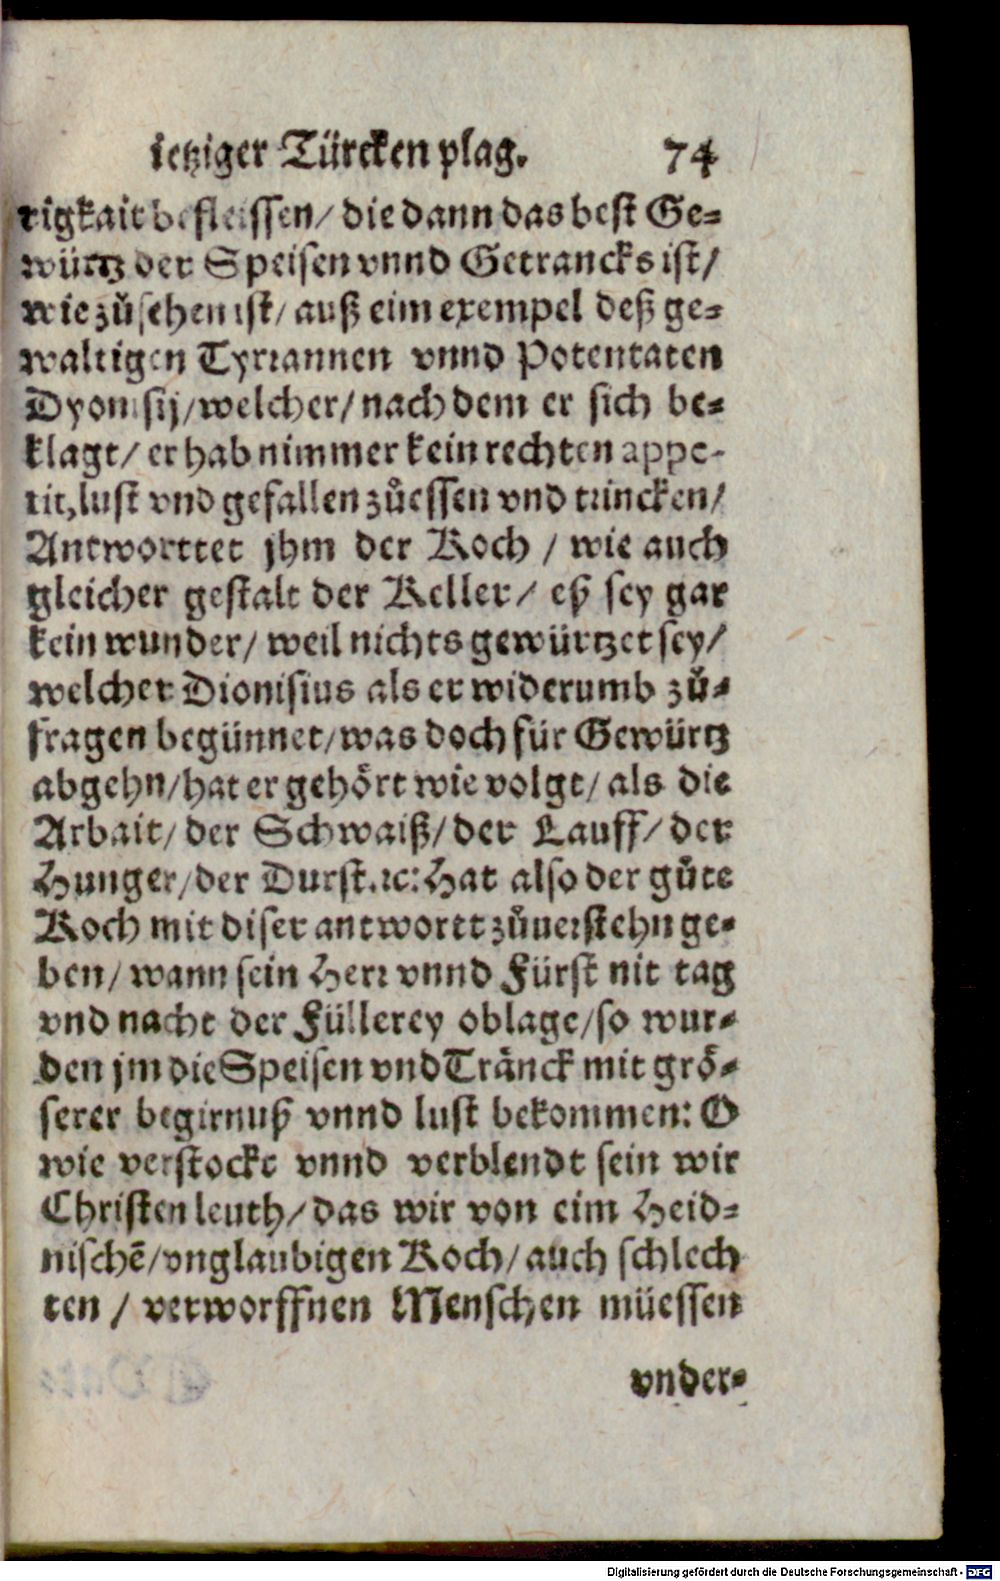 ietziger Türcken plag. 74
tigkait befleissen/ die dann das best Ge-
würtz der Speisen vnnd Getrancks ist/
wie zůsehen ist/ auß eim exempel deß ge-
waltigen Tyrannen vnnd Potentaten
Dyonisij/ welcher/ nach dem er sich be-
klagt/ er hab nimmer kein rechten appe-
tit, lust vnd gefallen zůessen vnd trincken/
Antworttet jhm der Koch / wie auch
gleicher gestalt der Keller/ eß sey gar
kein wunder/ weil nichts gewürtzet sey/
welcher Dionisius als er widerumb zů-
fragen begünnet/ was doch für Gewürtz
abgehn/ hat er gehört wie volgt/ als die
Arbait/ der Schwaiß/ der Lauff/ der
Hunger/ der Durst. ꝛc: Hat also der gůte
Koch mit diser antwortt zůuerstehn ge-
ben/ wann sein Herr vnnd Fürst nit tag
vnd nacht der Füllerey oblage/ so wur-
den jm die Speisen vnd Tränck mit grö-
serer begirnuß vnnd lust bekommen: O
wie verstockt vnnd verblendt sein wir
Christen leuth/ das wir von eim Heid-
nischē/ vnglaubigen Koch/ auch schlech
ten / verworffnen Menschen müessen
vnder-
Digitalisierung gefördert durch die Deutsche Forschungsgemeinschaft - DFG